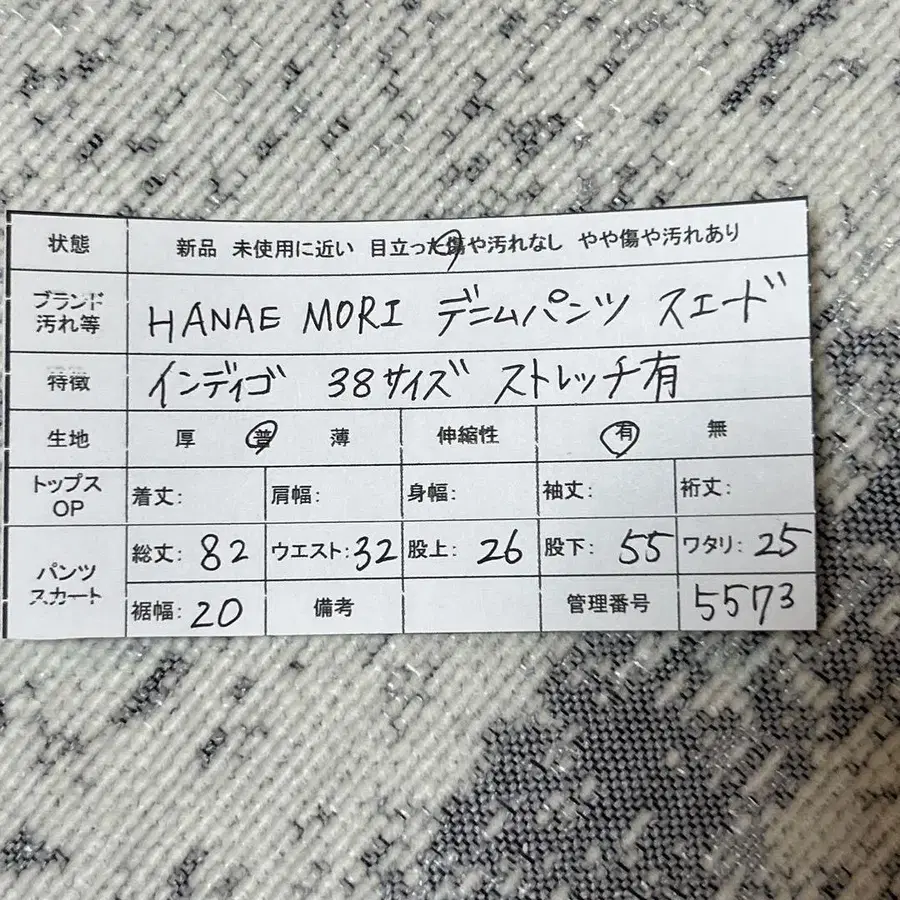 状態 新品 未使用に近い 目立った傷や汚れなし やや傷や汚れあり
ブランド
汚れ等 HANAE MORI デニムパンツ スエード
特徴 インディゴ 38サイズ ストレッチ有
生地 厚 普 薄 伸縮性 有 無
トップス
OP 着丈: 肩幅: 身幅: 袖丈: 裄丈:
パンツ
スカート 総丈: 82 ウエスト: 32 股上: 26 股下: 55 ワタリ: 25
裾幅: 20 備考 管理番号 5573